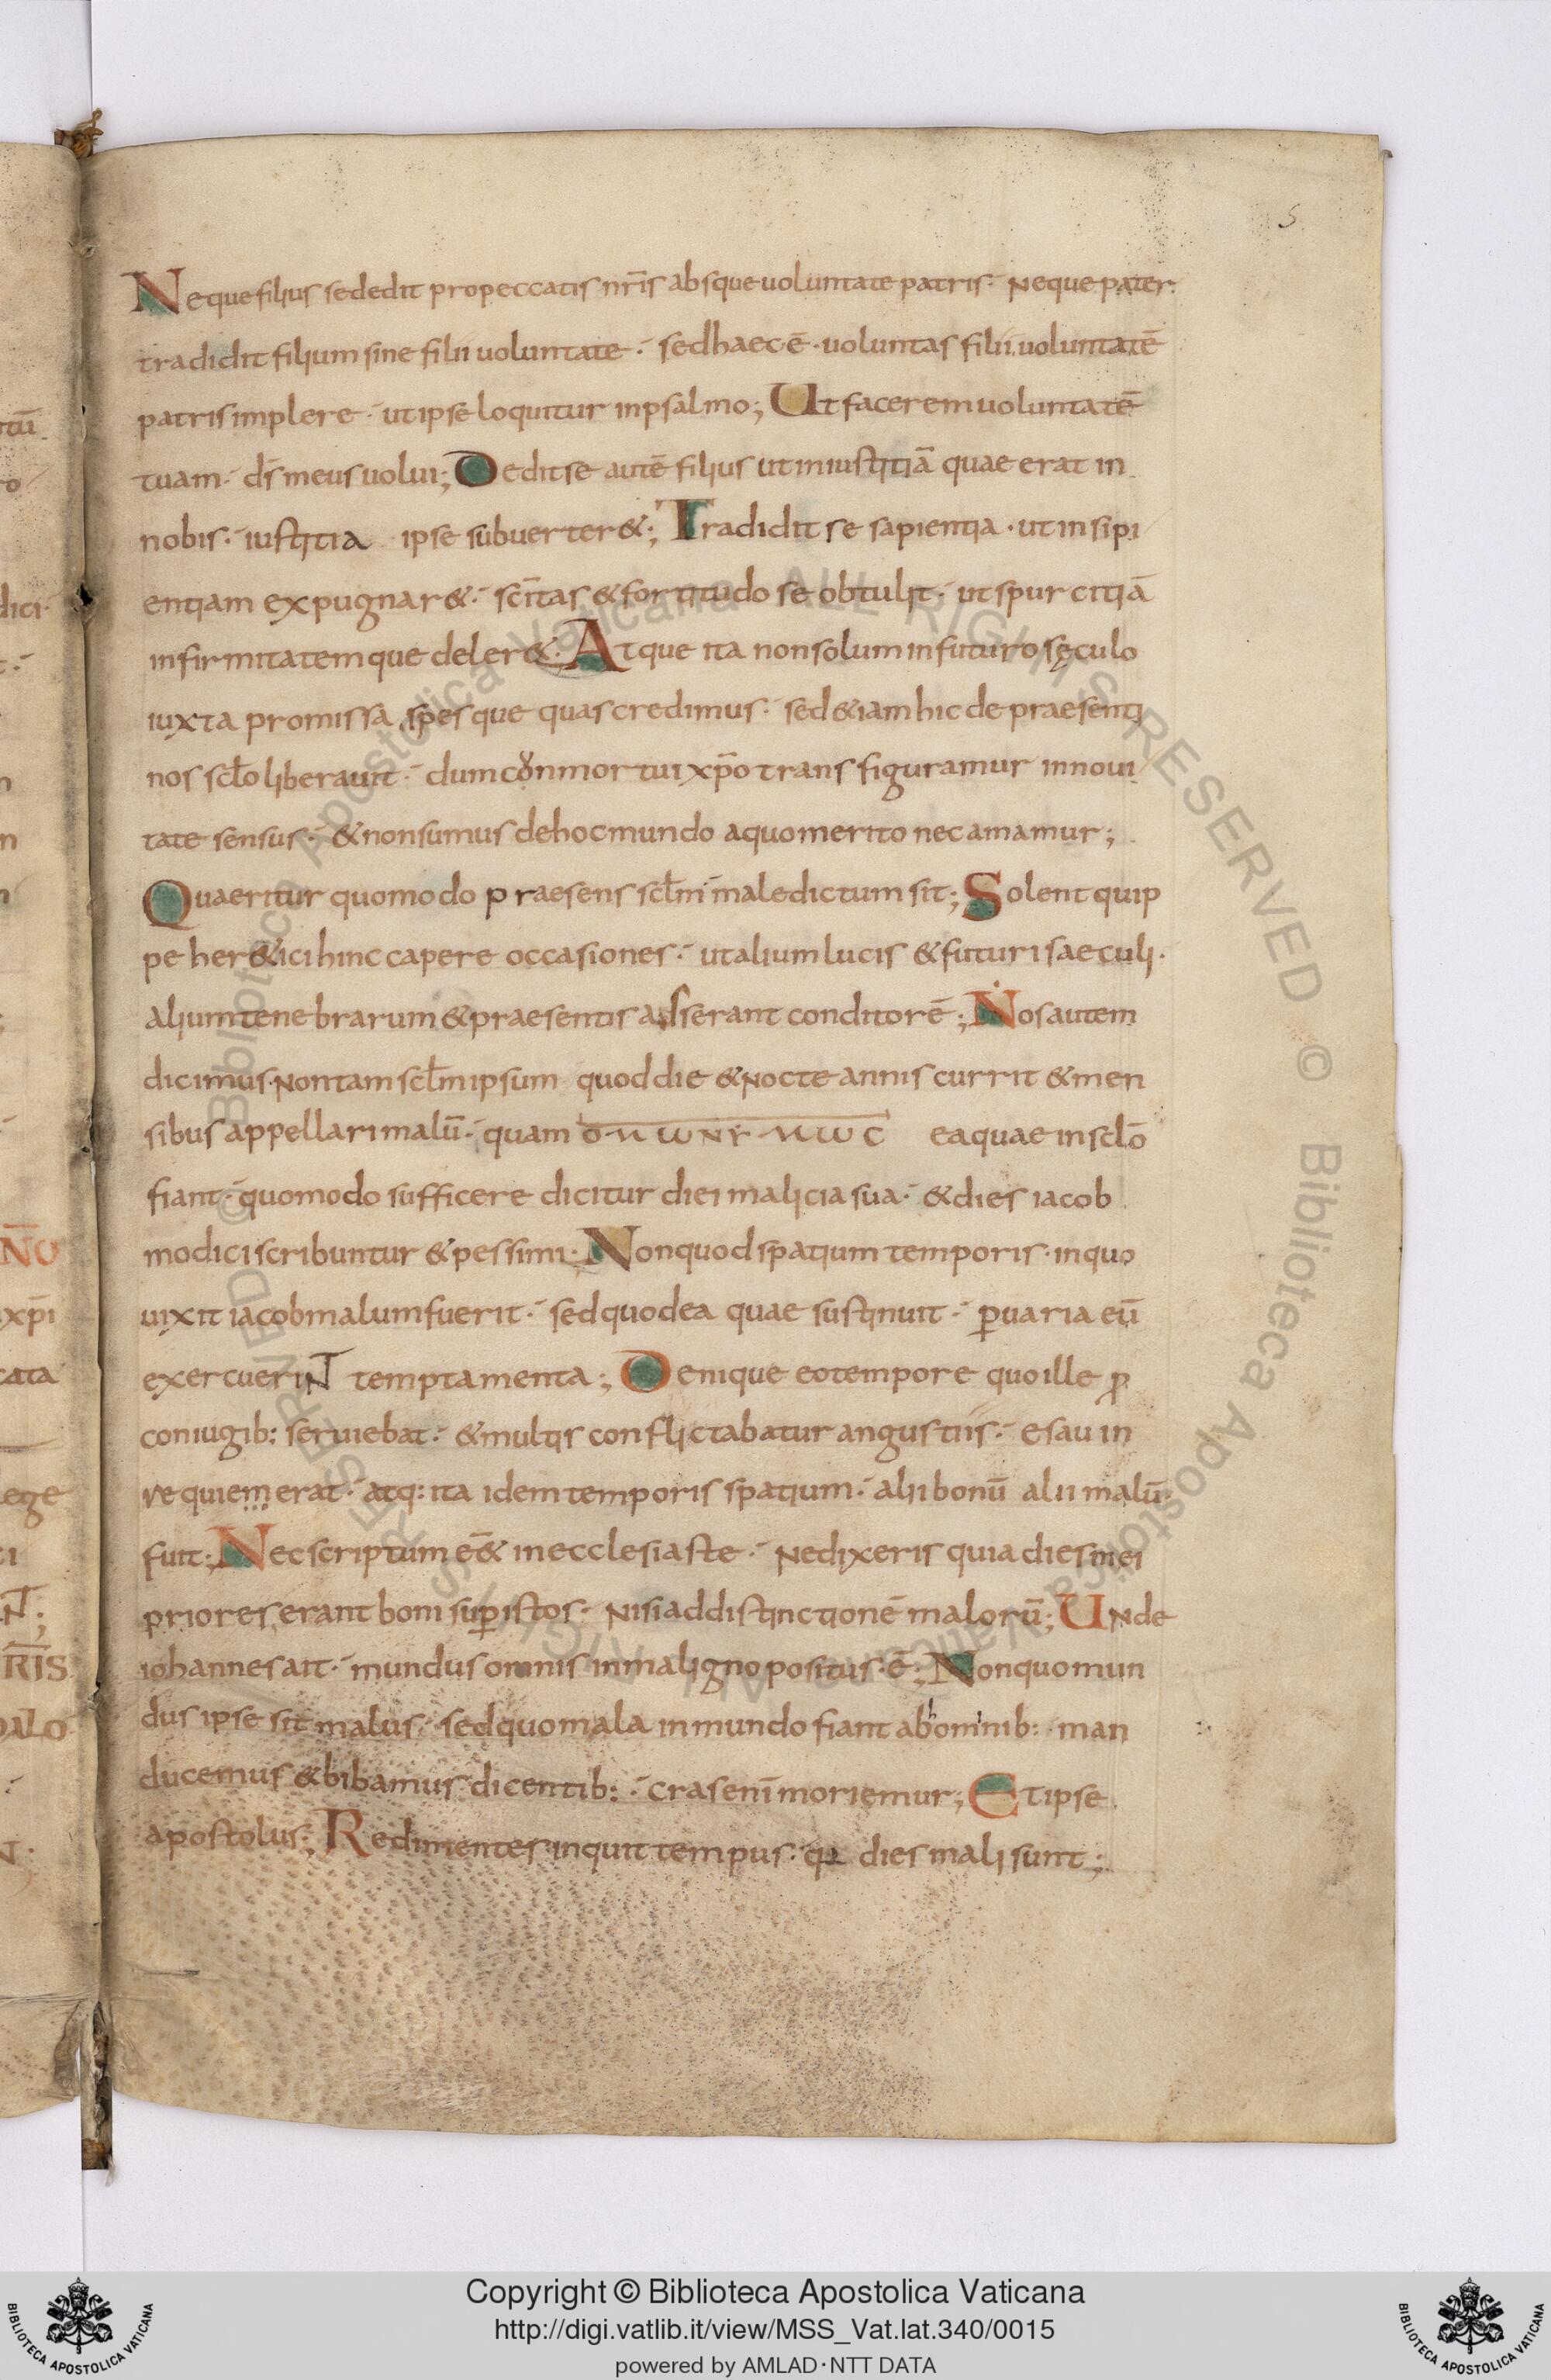 5
Neque filius se dedit pro peccatis nr̄is absque uoluntate patris· Neque pater
tradidit filium sine filii uoluntate· sed haec ē· uoluntas filii uoluntatē
patris implere· ut ipse loquitur in psalmo; Ut facerem uoluntatē
tuam· ds̄ meus uolui; Dedit se autē filius ut iniustitiā quae erat in
nobis· iustitia ipse subuerter&; Tradidit se sapientia· ut insipi
entiam expugnar&· sc̄itas & fortitudo se obtulit· ut spurcitiā
infirmitatemque deler&; Atque ita non solum in futuro sęculo
iuxta promissa spesque quas credimus· sed &iam hic de praesenti
nos scl̄o liberauit· dum conmortui xp̄o transfiguramur in noui
tate sensus· & non sumus de hoc mundo a quo merito nec amamur;
Quaeritur quomodo praesens scl̄m maledictum sit; Solent quip
pe her&ici hinc capere occasiones· ut alium lucis & futuri saeculi·
alium tenebrarum & praesentis adserant conditorē; Nos autem
dicimus· Non tam scl̄m ipsum quod die & Nocte annis currit & men
sibus appellari malū· quam ea quae in scl̄o
fiant· quomodo sufficere dicitur diei malicia sua· & dies iacob
modici scribuntur & pessimi· Non quod spatium temporis· in quo
uixit iacob malum fuerit· sed quod ea quae sustinuit· p̱ uaria eū
exercueriNT temptamenta; Denique eo tempore quo ille p̱
coniugib: seruiebat· & multis conflictabatur angustiis· esau in
requiem erat· atq: ita idem temporis spatium· alii bonū alii malū
fuit; Nec scriptum ē & in ecclesiaste· Ne dixeris quia dies mei
priores erant boni sup̱ istos· Nisi ad distinctionē malorū; UNde
iohannes ait· mundus omnis in maligno positus· ē; Non quo mun
dus ipse sit malus· sed quo mala in mundo fiant ab hominib:· man
ducemus & bibamus dicentib:· cras eni̅ moriemur; Et ipse
apostolus; Redimentes inquit tempus· qꝛ dies mali sunt;
Copyright © Biblioteca Apostolica Vaticana
http://digi.vatlib.it/view/MSS_Vat.lat.340/0015
powered by AMLAD·NTT DATA
BIBLIOTECA APOSTOLICA VATICANA
BIBLIOTECA APOSTOLICA VATICANA